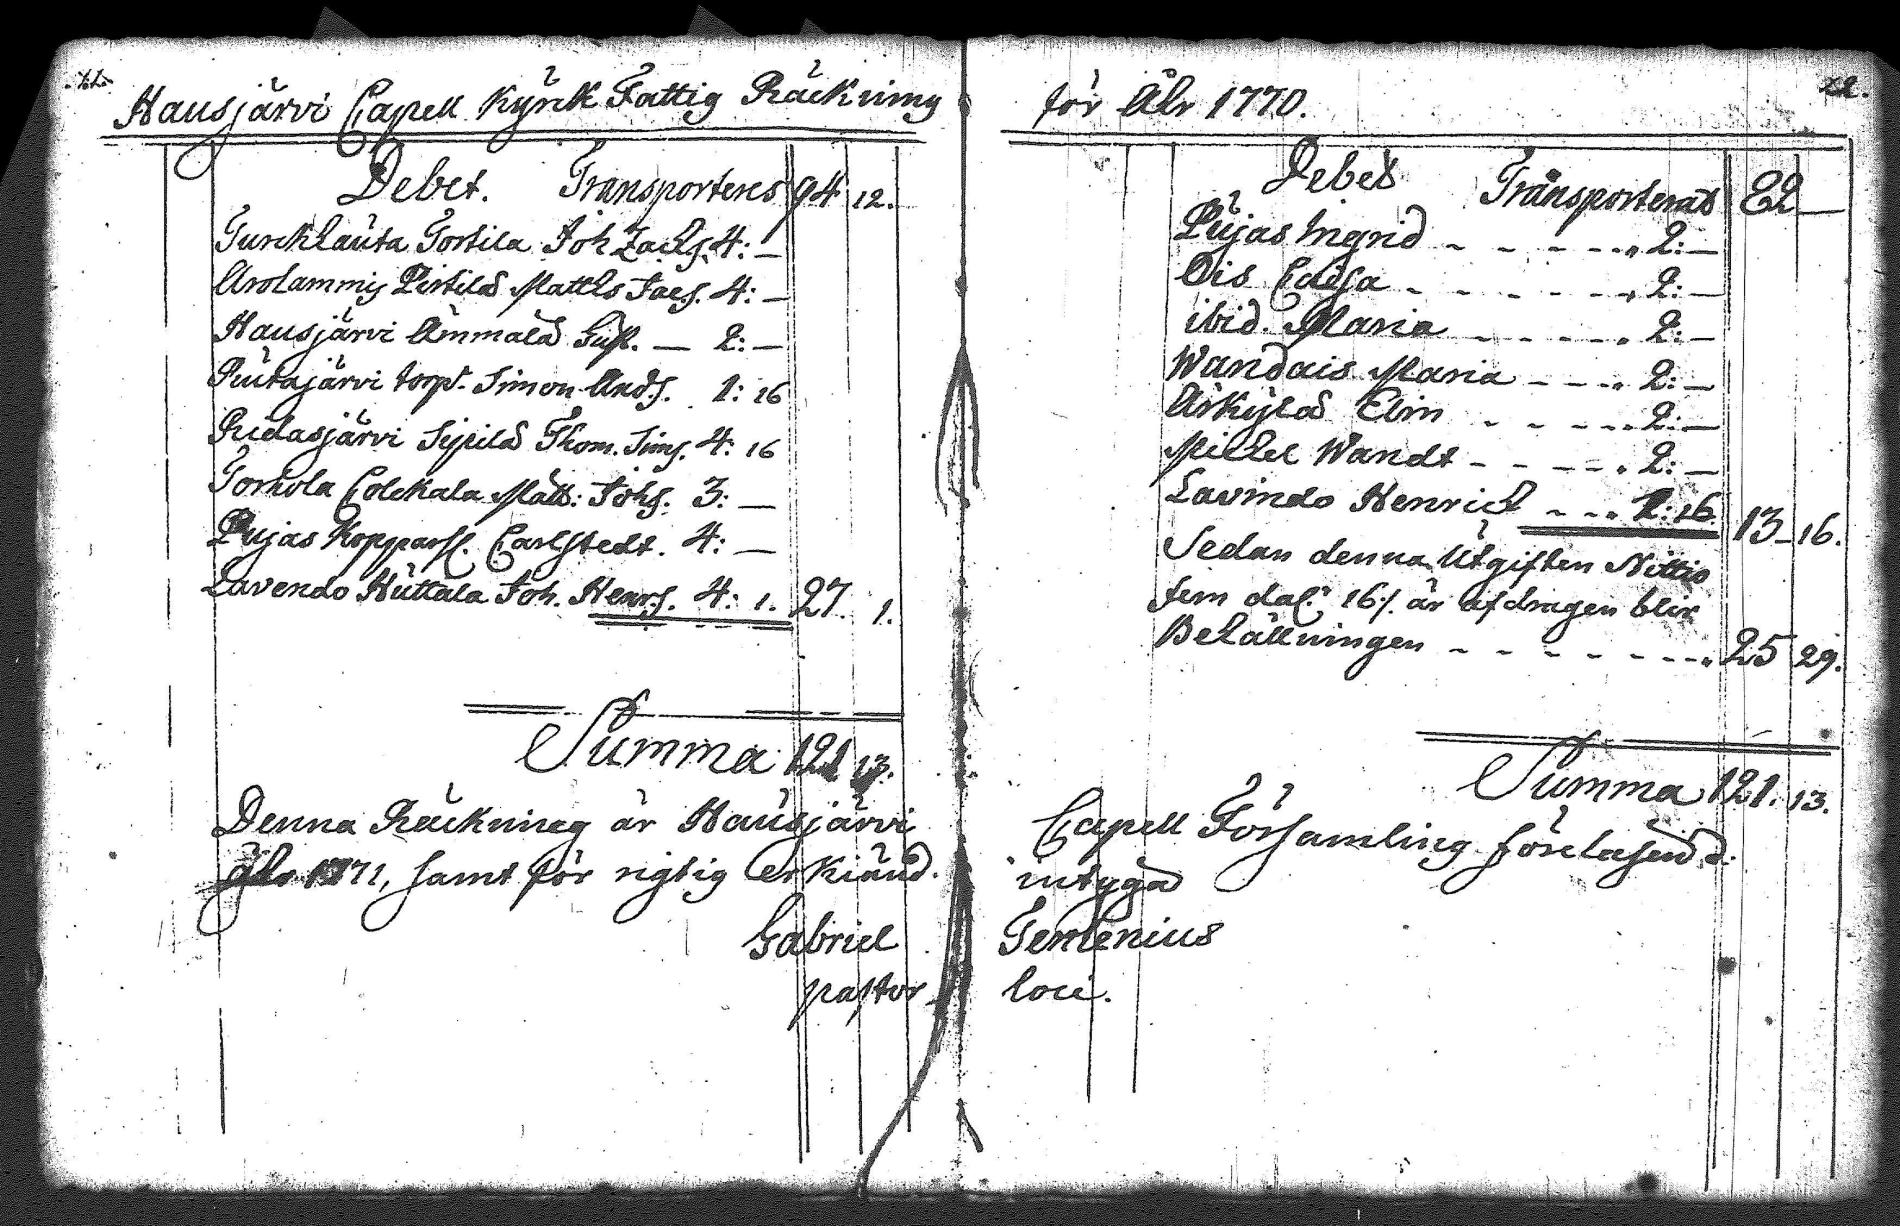 Hausjärvi Capell Kyrck Fattig Räckning
Debet. Transporteres 94 12.
Turckhauta Tortila Joh Zachs. 4: —
Arolammij Pertilä Matths Jacs. 4: —
Hausjärvi Ammälä Gust. — 2: —
Riutajärvi torp. Simon Ands. 1: 16
Ridasjärvi Sipilä Thom. Sims. 4: 16
Torhola Colckala Matts: Johs. 3: —
Pujas Kopparsl. Carlstedt. 4: —
Lavendo Huttala Joh. Henrs. 4: 1. 27. 1.
Summa 121 13.
Denna Räckning är Hausjärvi
åhr 1771, samt för rigtig erkiänd.
Gabriel
pastor
för Åhr 1770.
22.
Debet Transporterat 82 —
Pujas Ingrid - - - - - - „ 2: —
Ois Caisa - - - - - - „ 2: —
ibid. Maria - - - - - „ 2: —
Wandais Maria - - - „ 2: —
Arkylä Elin - - - - - 2: —
Michel Wandt - - - - - „ 2: —
Lavindo Henrich - - - „ 1: 16. 13 — 16.
Sedan denna Utgiften Nittio
fem dal. 16 /. är afdragen blir
Behållningen - - - - - - - „ 25 29.
Summa 121. 13.
Capell Församling föreläsen d:
intygad
Temlenius
loci.